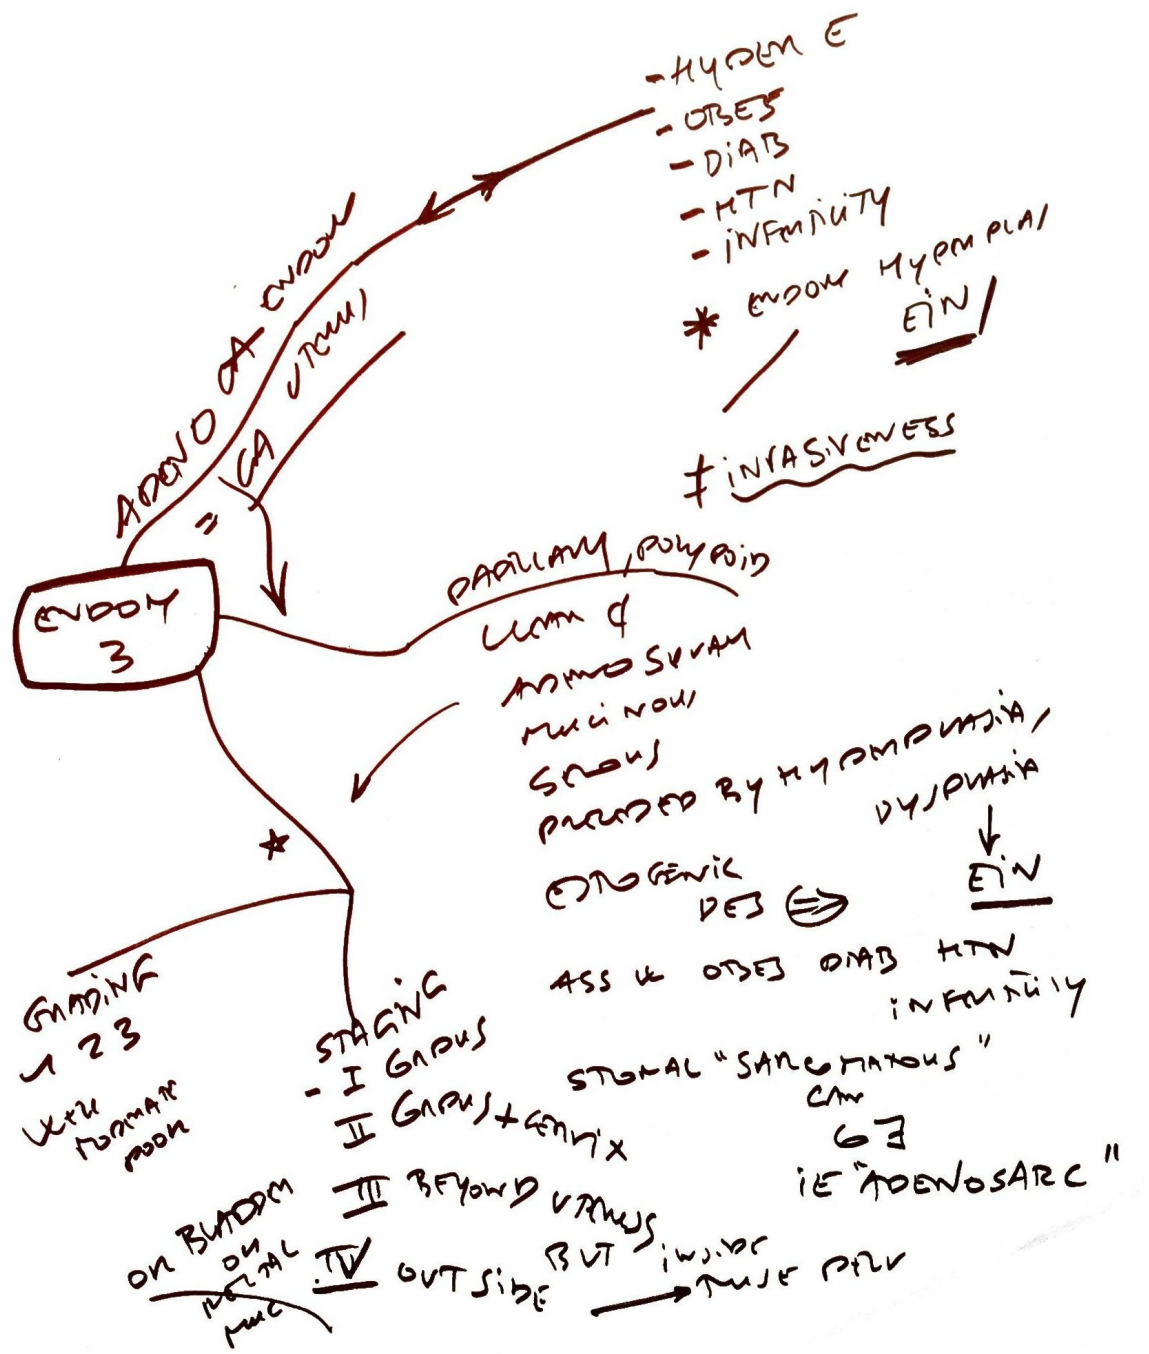 - HYPER E
- OBES
- DIAB
- HTN
- INFERTILITY
* ENDOM HYPERPLAS
EIN
≠ INVASIVENESS
ADENO CA ENDOM
= CA UTERUS
ENDOM
3
PAPILLARY, POLYPOID
CLEAR ¢
ADENOSQUAM
MUCINOUS
SEROUS
PRECEDED BY HYPERPLASIA,
DYSPLASIA
↓
EIN
ESTROGENIC
DES
ASS W OBES DIAB HTN
INFERTILITY
STROMAL "SARCOMATOUS"
CAN
IE "ADENOSARC"
GRADING
1 2 3
WELL
MODERATE
POOR
STAGING
- I CORPUS
II CORPUS + CERVIX
III BEYOND UTERUS
BUT INSIDE
TRUE PELV
IV OUTSIDE
OR BLADDER
OR
RECTAL
MUC